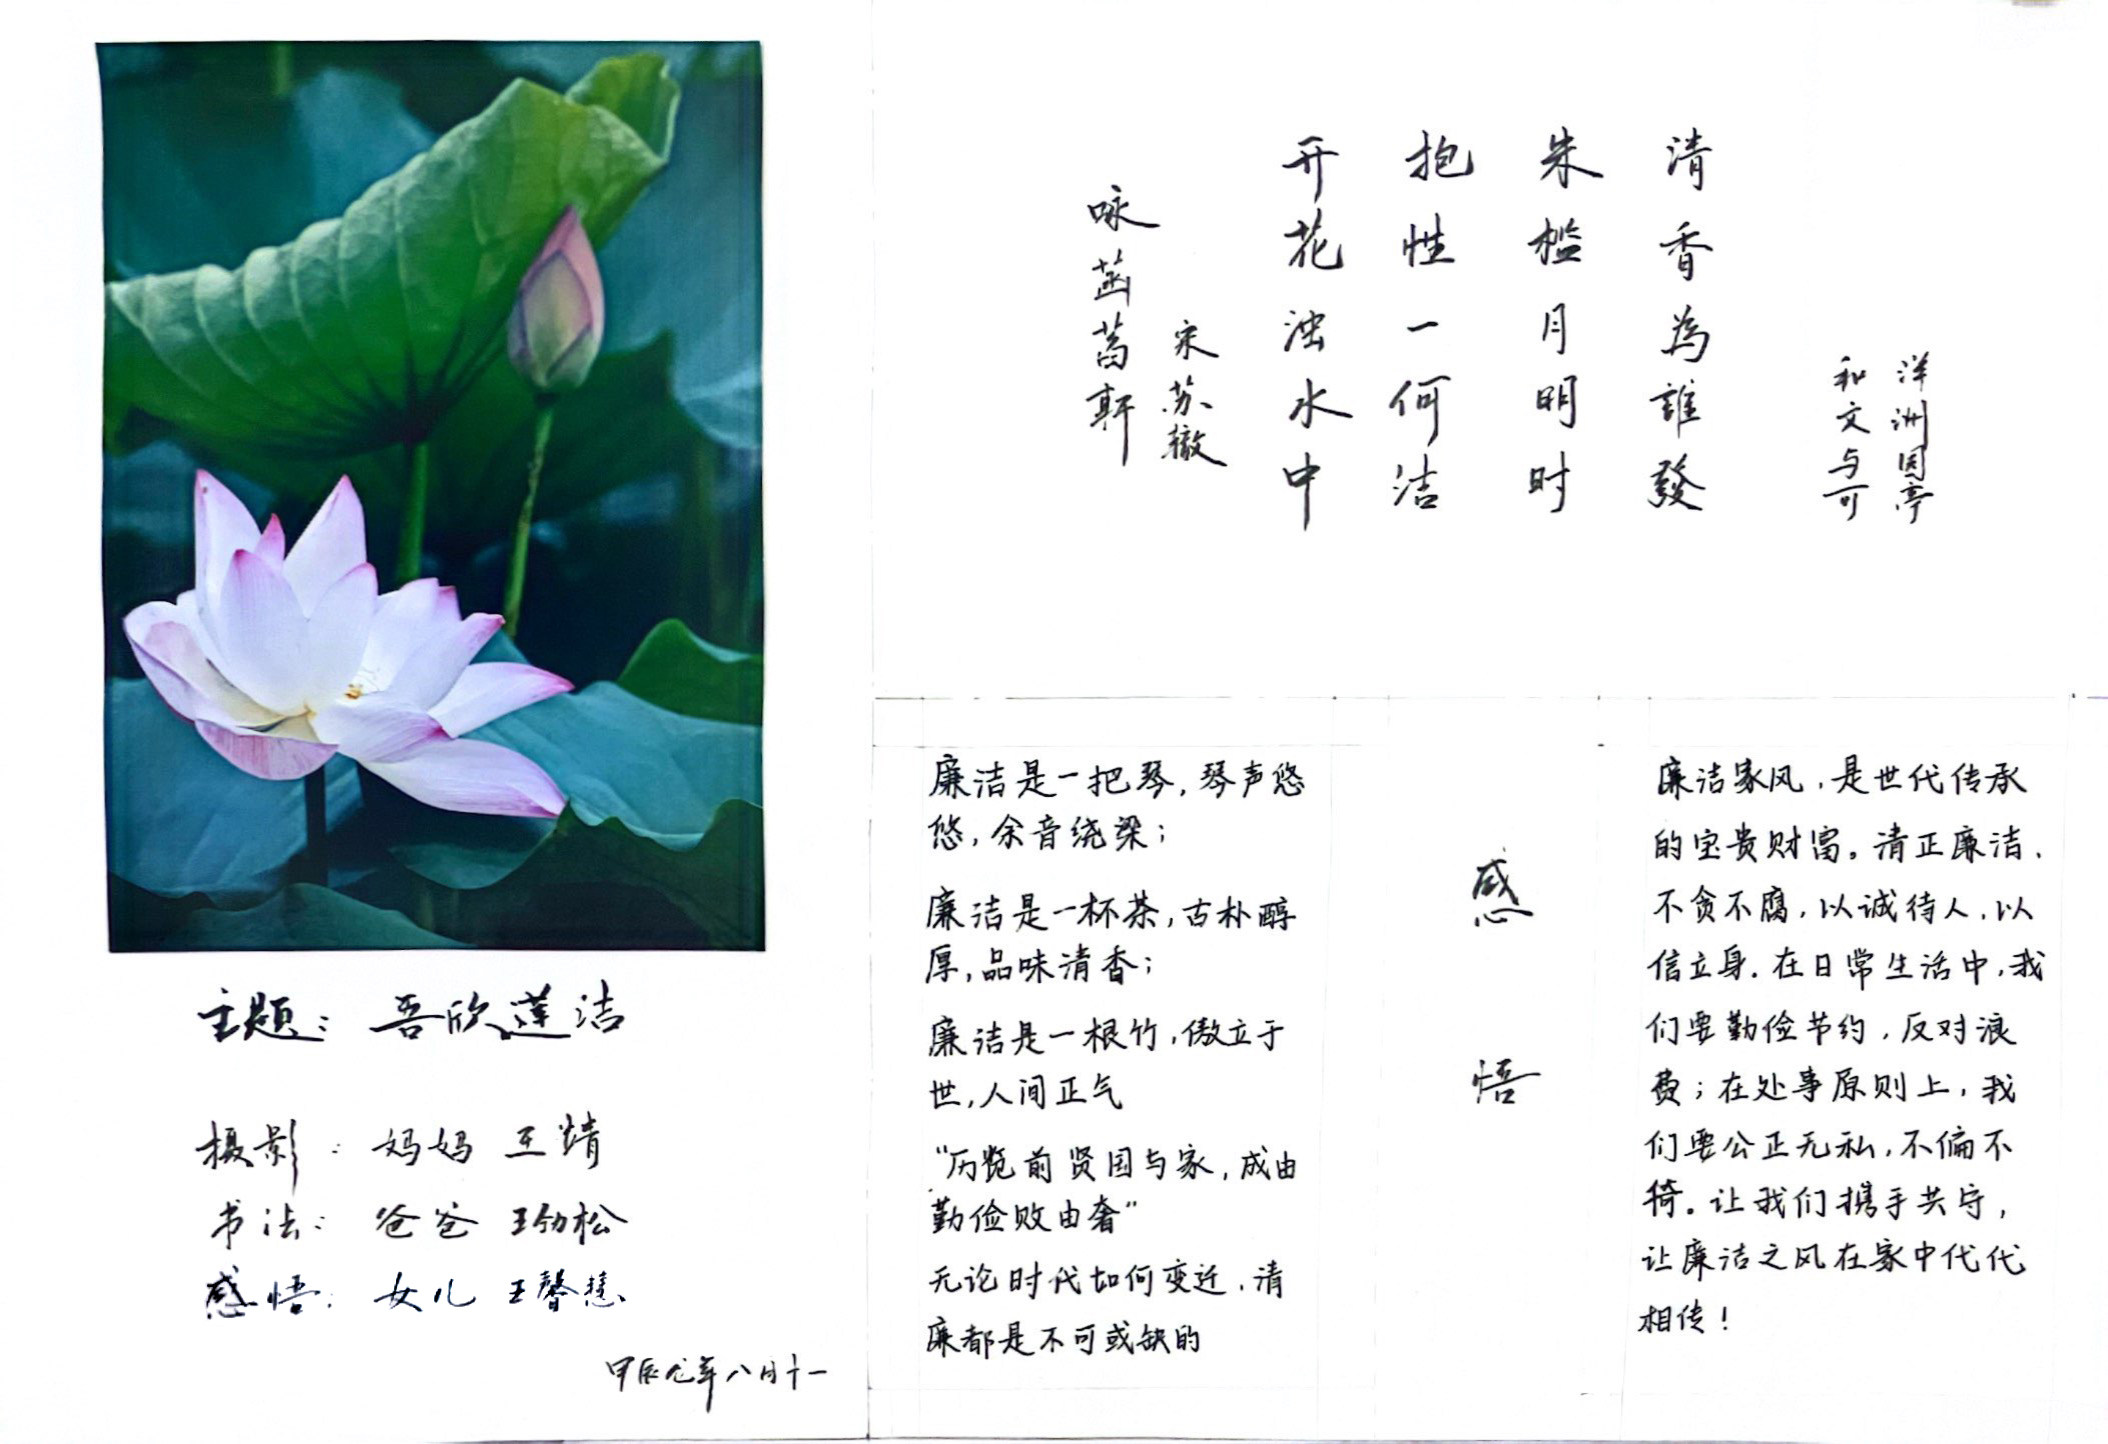 主题：吾欣莲洁
摄影：妈妈 王
书法：爸爸 王劲松
感悟：女儿 王馨
甲辰龙年八月十一
洋洲园亭
和文与可
清香為誰發
朱槛月明时
抱性一何洁
开花浊水中
宋苏辙
咏菡萏轩
廉洁是一把琴，琴声悠
悠，余音绕梁；
廉洁是一杯茶，古朴醇
厚，品味清香；
廉洁是一根竹，傲立于
世，人间正气
“历览前贤国与家，成由
勤俭败由奢”
无论时代如何变迁，清
廉都是不可或缺的
感
悟
廉洁家风，是世代传承
的宝贵财富。清正廉洁、
不贪不腐，以诚待人，以
信立身。在日常生活中，我
们要勤俭节约，反对浪
费；在处事原则上，我
们要公正无私，不偏不
倚。让我们携手共守，
让廉洁之风在家中代代
相传！